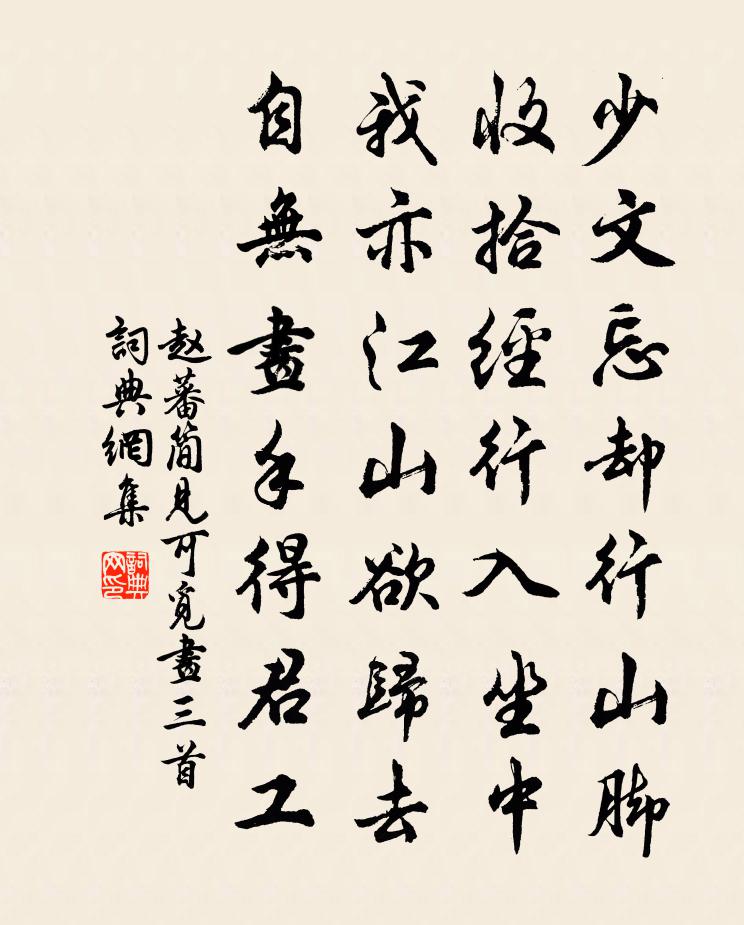 少文忘却行山脚
收拾經行入坐中
我亦江山欲歸去
自無畫手得君工
赵蕃简見可覓畫三首
詞典網集
詞典网印